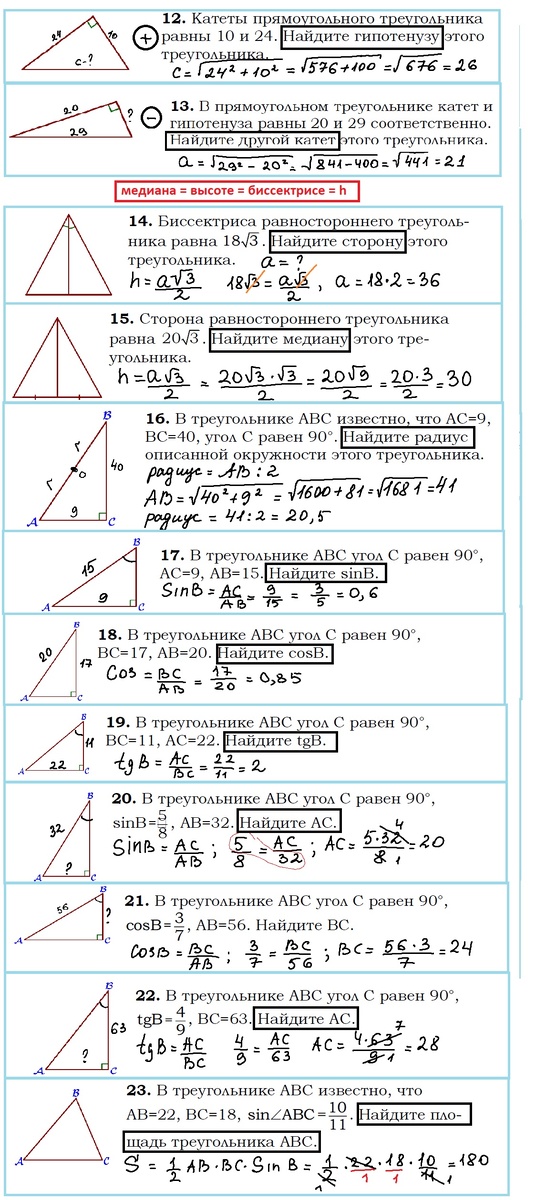 12. Катеты прямоугольного треугольника
равны 10 и 24. Найдите гипотенузу этого
треугольника.
24 10 c-?
+
c = √(24² + 10²) = √(576+100) = √676 = 26
13. В прямоугольном треугольнике катет и
гипотенуза равны 20 и 29 соответственно.
Найдите другой катет этого треугольника.
20 ? 29
−
a = √(29² - 20²) = √(841-400) = √441 = 21
медиана = высоте = биссектрисе = h
14. Биссектриса равностороннего треуголь-
ника равна 18√3. Найдите сторону этого
треугольника. a = ?
h = a√3/2 18√3 = a√3/2, a = 18·2 = 36
15. Сторона равностороннего треугольника
равна 20√3. Найдите медиану этого тре-
угольника.
h = a√3/2 = 20√3·√3/2 = 20√9/2 = 20·3/2 = 30
16. В треугольнике ABC известно, что AC=9,
BC=40, угол C равен 90°. Найдите радиус
описанной окружности этого треугольника.
B r o r 40 9 A C
радиус = AB : 2
AB = √(40² + 9²) = √(1600 + 81) = √1681 = 41
радиус = 41 : 2 = 20,5
17. В треугольнике ABC угол C равен 90°,
AC=9, AB=15. Найдите sinB.
B 15 9 A C
SinB = AC/AB = 9/15 = 3/5 = 0,6
18. В треугольнике ABC угол C равен 90°,
BC=17, AB=20. Найдите cosB.
B 20 17 A C
Cos = BC/AB = 17/20 = 0,85
19. В треугольнике ABC угол C равен 90°,
BC=11, AC=22. Найдите tgB.
B 11 22 A C
tgB = AC/BC = 22/11 = 2
20. В треугольнике ABC угол C равен 90°,
sinB=5/8, AB=32. Найдите AC.
B 32 ? A C
SinB = AC/AB ; 5/8 = AC/32 ; AC = 5·32/8 = 20
4 1
21. В треугольнике ABC угол C равен 90°,
cosB=3/7, AB=56. Найдите BC.
B 56 ? A C
CosB = BC/AB ; 3/7 = BC/56 ; BC = 56·3/7 = 24
22. В треугольнике ABC угол C равен 90°,
tgB=4/9, BC=63. Найдите AC.
B 63 ? A C
tgB = AC/BC 4/9 = AC/63 AC = 4·63/9 = 28
7 1
23. В треугольнике ABC известно, что
AB=22, BC=18, sin∠ABC=10/11. Найдите пло-
щадь треугольника ABC.
B A C
S = 1/2 AB · BC · Sin B = 1/2 · 22/1 · 18/1 · 10/11 = 180
1 1